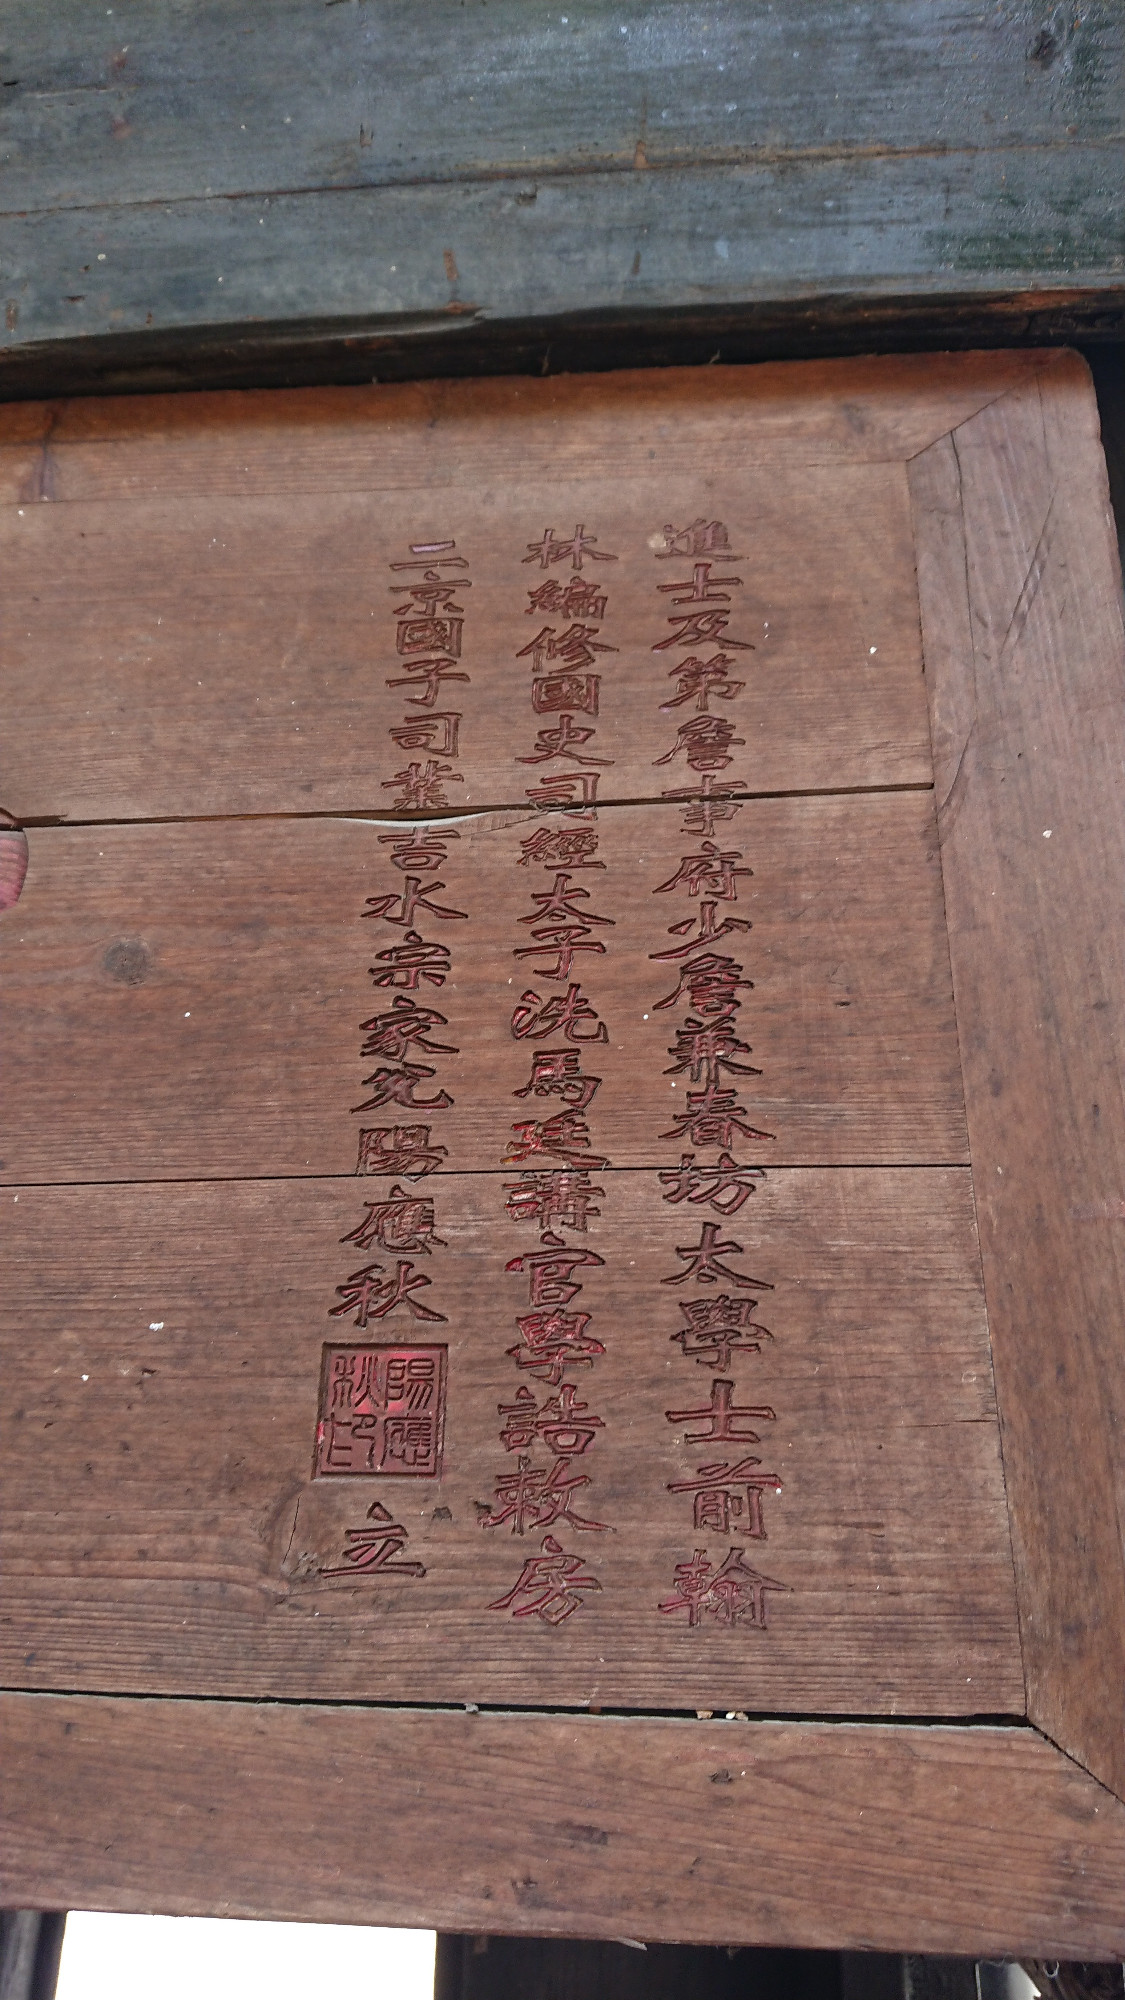 進士及第詹事府少詹兼春坊太學士前翰
林編修國史司經太子洗馬廷講官學誥敕房
二京國子司業吉水宗家先陽應秋
陽應秋印
立